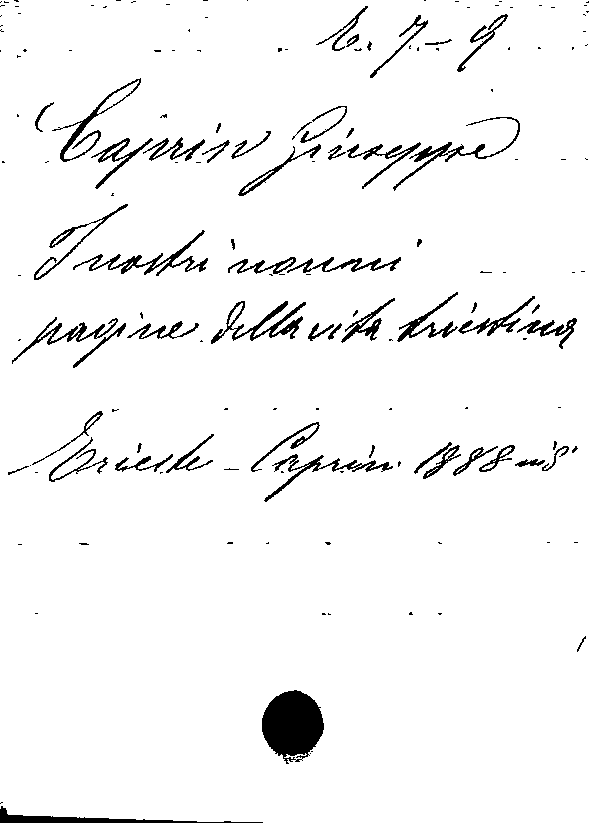 E. 7-9
Caprin Giuseppe
I nostri nonni
pagine della vita triestina
Trieste - Caprin. 1888 in 8°